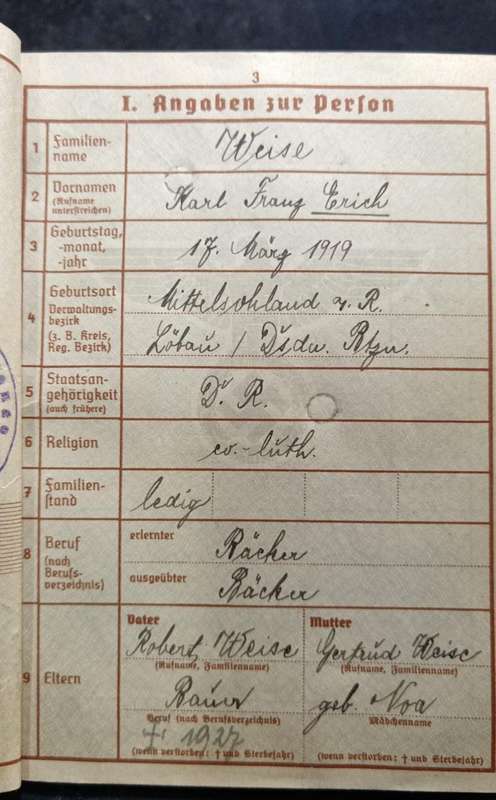 3
I. Angaben zur Person
1 Familien-
name
Weise
2 Vornamen
(Rufname
unterstreichen)
Karl Franz Erich
3 Geburtstag,
-monat,
-jahr
17. März 1919
4 Geburtsort
Verwaltungs-
bezirk
(z. B. Kreis,
Reg. Bezirk)
Mittelsohland a. R.
Löbau / Dsdn. Btzn.
5 Staatsan-
gehörigkeit
(auch frühere)
D. R.
6 Religion
ev.-luth.
7 Familien-
stand
ledig
8 Beruf
(nach
Berufs-
verzeichnis)
erlernter
Bäcker
ausgeübter
Bäcker
9 Eltern
Vater
Robert Weise
(Rufname, Familienname)
Bauer
Beruf (nach Berufsverzeichnis)
(wenn verstorben: † und Sterbejahr)
Mutter
Gertrud Weise
(Rufname, Familienname)
geb. Noa
Mädchenname
(wenn verstorben: † und Sterbejahr)